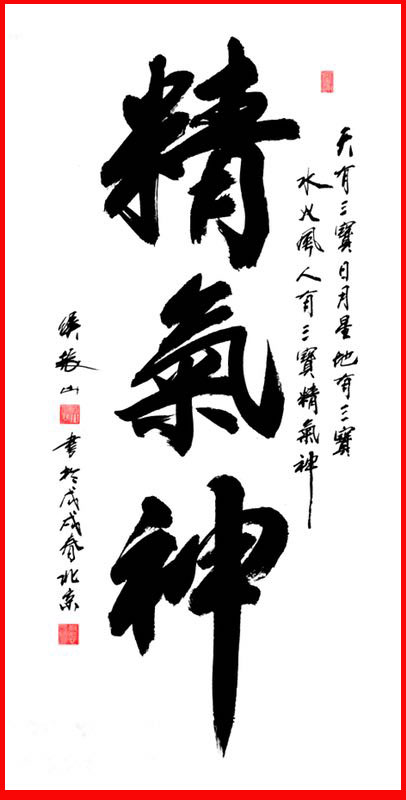 天有三寶日月星地有三寶
水火風人有三寶精氣神
精氣神
山 書於戊戌春北京